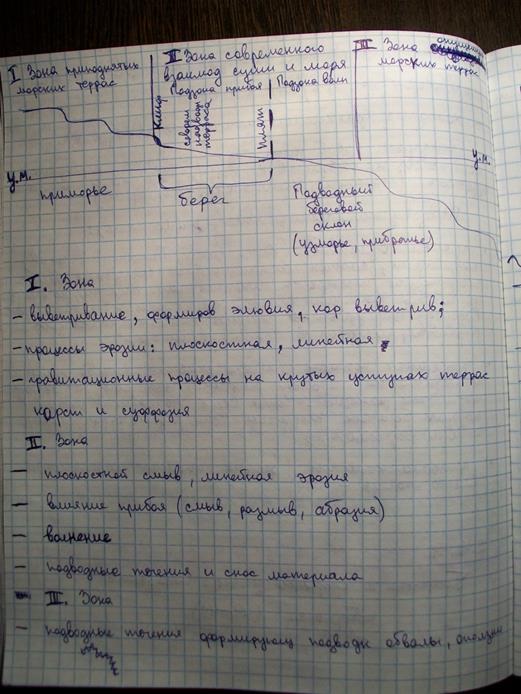 I Зона приподнятых морских террас
II Зона современного взаимод суши и моря
III Зона опущенн морских террас
Подзона прибоя
Подзона волн
Клиф
соврем подводн терраса
Пляж
у.м.
у.м.
приморье
берег
Подводный
береговой
склон
(узморье, прибрежье)
I. Зона
– выветривание, формиров элювия, кор выветрив;
– процессы эрозии: плоскостная, линейная
– гравитационные процессы на крутых уступах террас
карст и суффозия
II. Зона
– плоскостной смыв, линейная эрозия
– влияние прибоя (смыв, размыв, абразия)
– волнение
– подводные течения и снос материала
– III. Зона
– подводные течения формирующ подводн обвалы, оползни